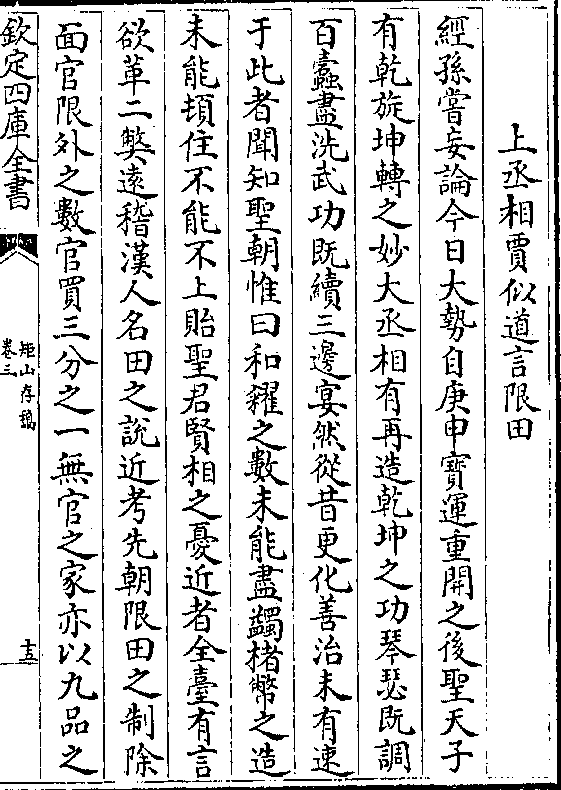 上丞相賈似道言限田
經孫嘗妄論今日大勢自庚申寶運重開之後聖天子
有乾旋坤轉之妙大丞相有再造乾坤之功琴瑟既調
百蠹盡洗武功既續三邊宴然從昔更化善治未有速
于此者聞知聖朝惟曰和糴之數未能盡蠲楮幣之造
未能頓住不能不上貽聖君賢相之憂近者全臺有言
欲革二弊遠稽漢人名田之說近考先朝限田之制除
面官限外之數官買三分之一無官之家亦以九品之
欽定四庫全書
矩山存稿
卷三
十五